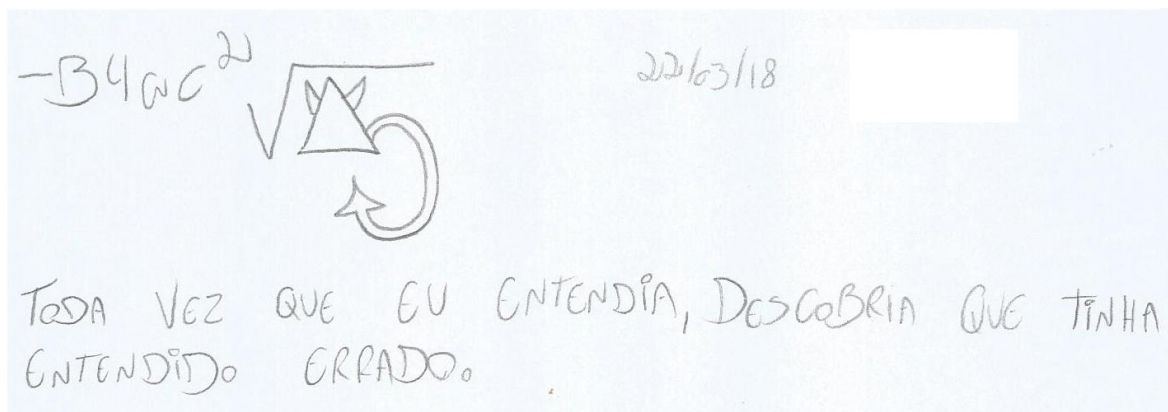 -B4ac² √Δ
22/03/18
TODA VEZ QUE EU ENTENDIA, DESCOBRIA QUE TINHA
ENTENDIDO ERRADO.